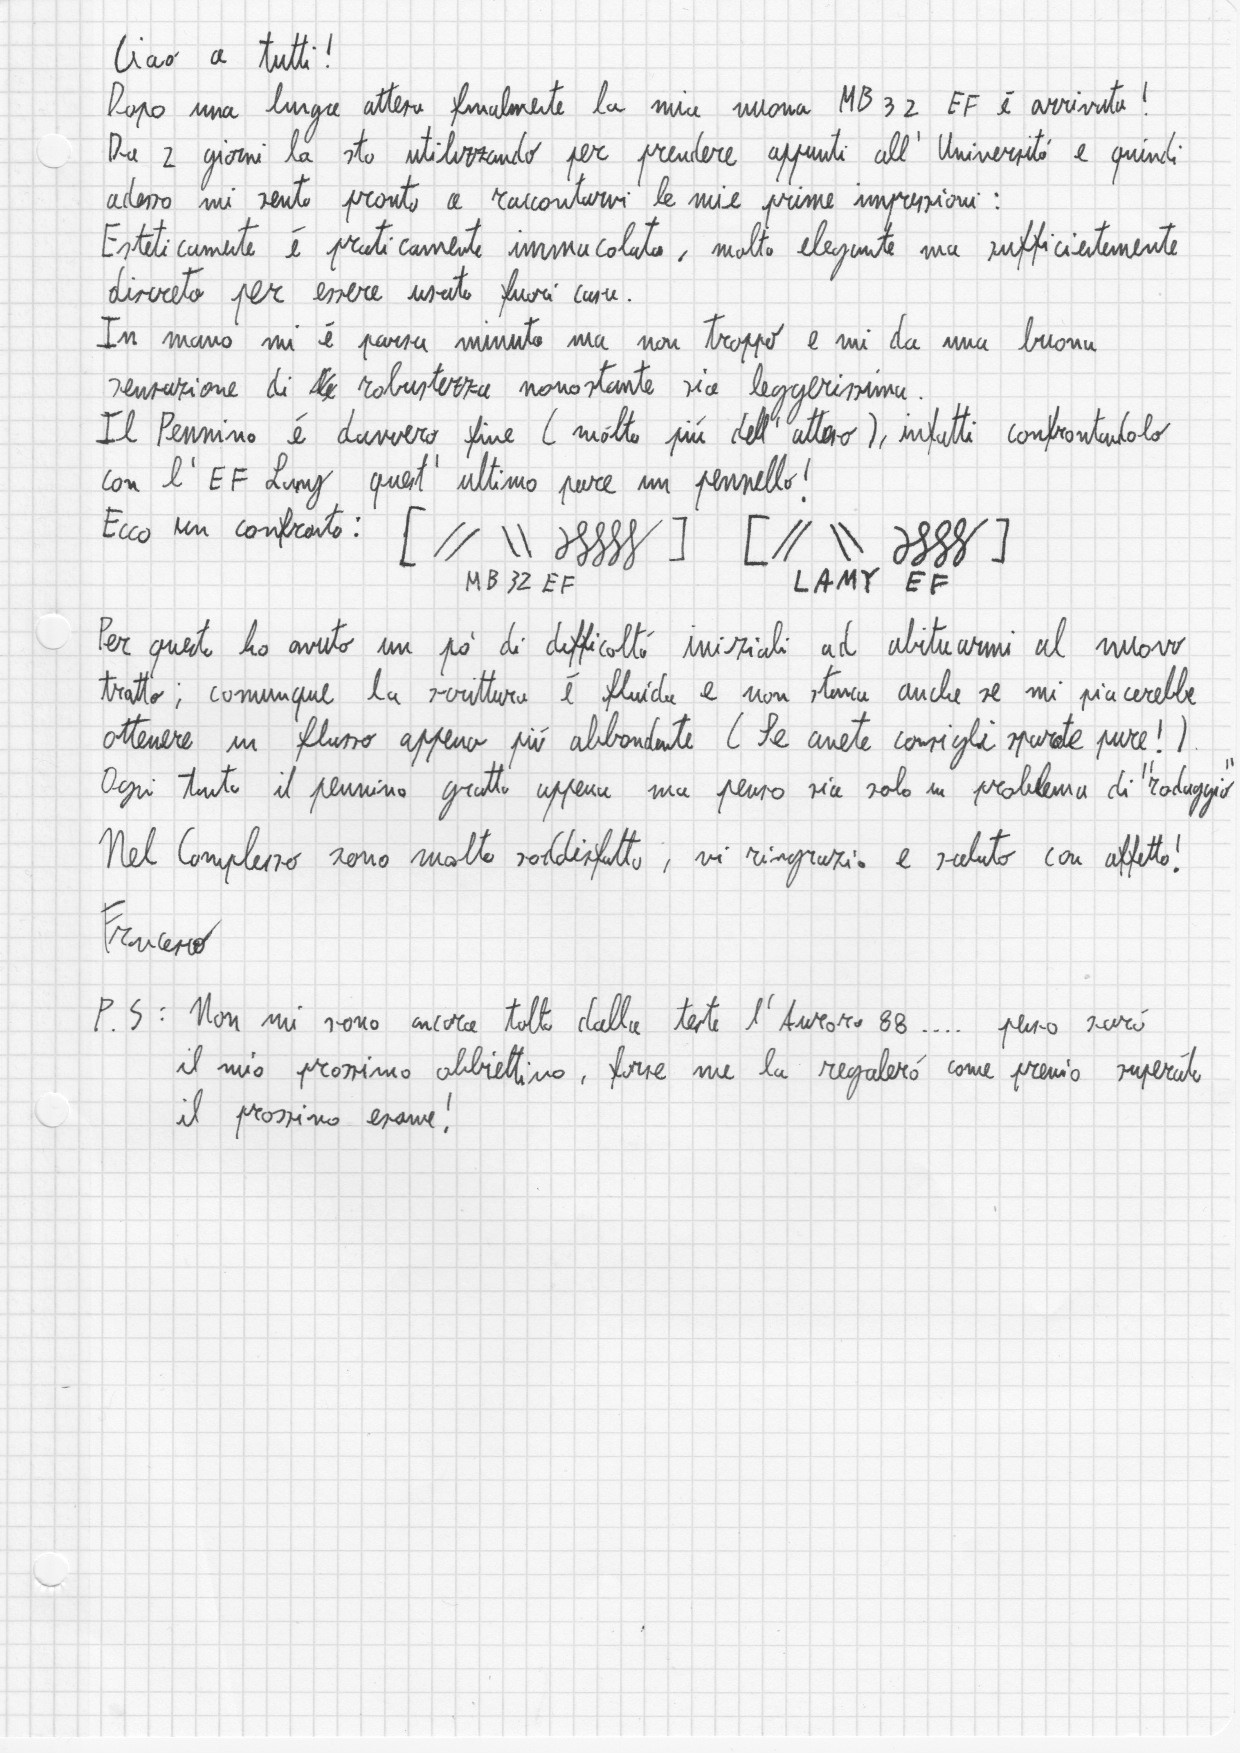 Ciao a tutti!
Dopo una lunga attesa finalmente la mia nuova MB 32 EF é arrivata!
Da 2 giorni la sto utilizzando per prendere appunti all' Universitá e quindi
adesso mi sento pronto a raccontarvi le mie prime impressioni:
Esteticamente é praticamente immacolata, molto elegante ma sufficientemente
discreta per essere usata fuori casa.
In mano mi é parsa minuta ma non troppo e mi da una buona
sensazione di robustezza nonostante sia leggerissima.
Il Pennino é davvero fine (molto piú dell' atteso), infatti confrontandolo
con l' EF Lamy quest' ultimo pare un pennello!
Ecco un confronto: [ // \\ ] [ // \\ ]
MB 32 EF LAMY EF
Per questo ho avuto un pó di difficoltá iniziali ad abituarmi al nuovo
tratto; comunque la scrittura é fluida e non stanca anche se mi piacerebbe
ottenere un flusso appena piú abbondante (Se avete consigli sparate pure!).
Ogni tanto il pennino gratta appena ma penso sia solo un problema di "rodaggio"
Nel Complesso sono molto soddisfatto, vi ringrazio e saluto con affetto!
Francesco
P.S: Non mi sono ancora tolto dalla testa l'Aurora 88.... penso sará
il mio prossimo obbiettivo, forse me la regaleró come premio superato
il prossimo esame!